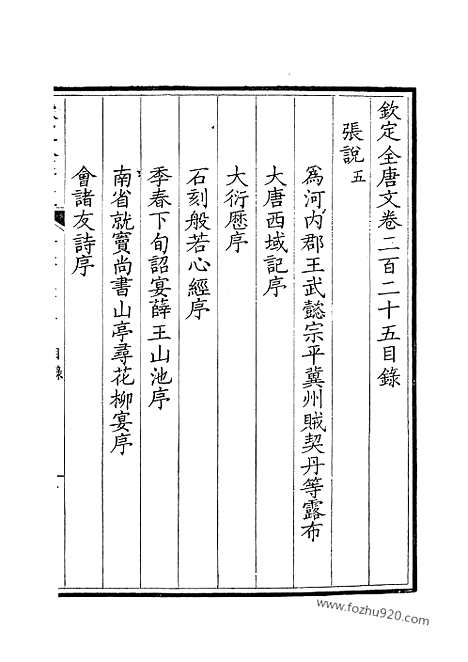 欽定全唐文卷二百二十五目錄
張説五
爲河内郡王武懿宗平冀州賊契丹等露布
大唐西域記序
大衍厯序
石刻般若心經序
季春下旬詔宴薛王山池序
南省就竇尚書山亭尋花柳宴序
會諸友詩序
目錄
www.fozhu920.com